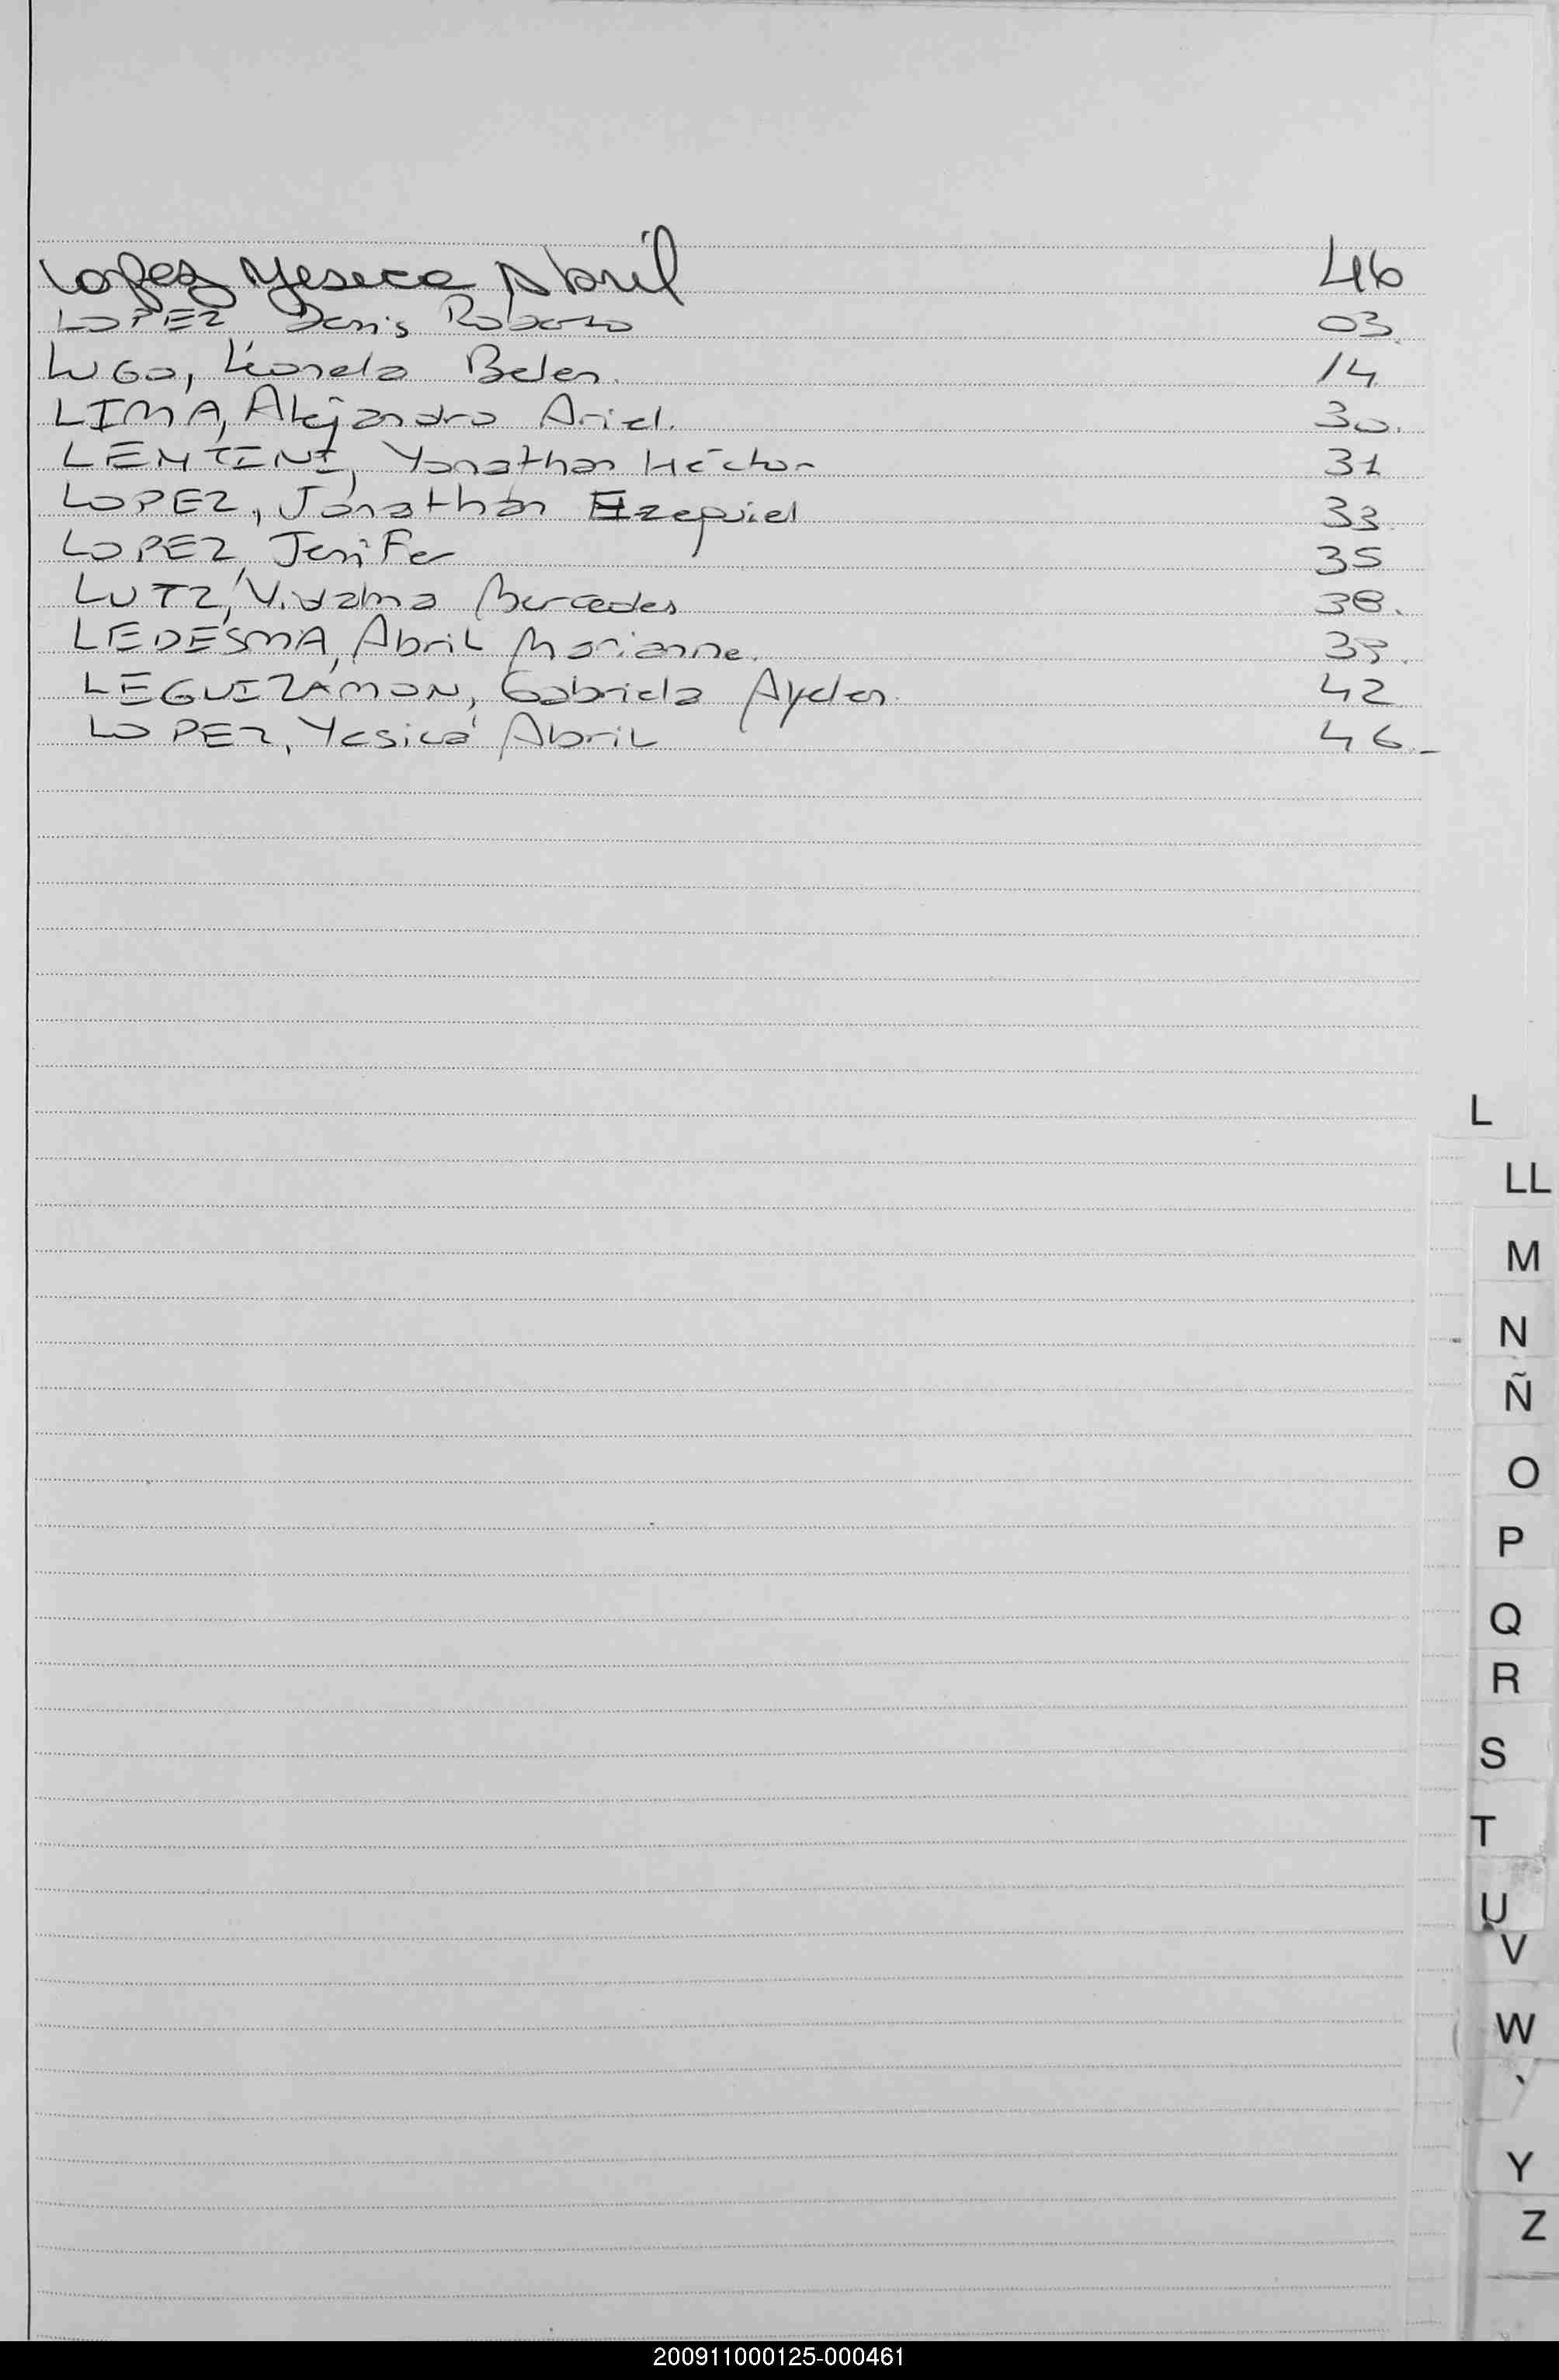 Lopez Yesica Abril 46
LOPEZ Denis Roberto 03
LUGO, Leonela Belen. 14
LIMA, Alejandro Ariel. 30.
LENTINI, Yonathan Héctor 31
LOPEZ, Jonathan Ezequiel 33
LOPEZ, Jenifer 35
LUTZ, Mercedes 38.
LEDESMA, Abril Marianne. 39.
LEGUIZAMON, Gabriela Ayelen. 42
LOPEZ, Yesica Abril 46.-
L
LL
M
N
Ñ
O
P
Q
R
S
T
U
V
W
Y
Z
200911000125-000461